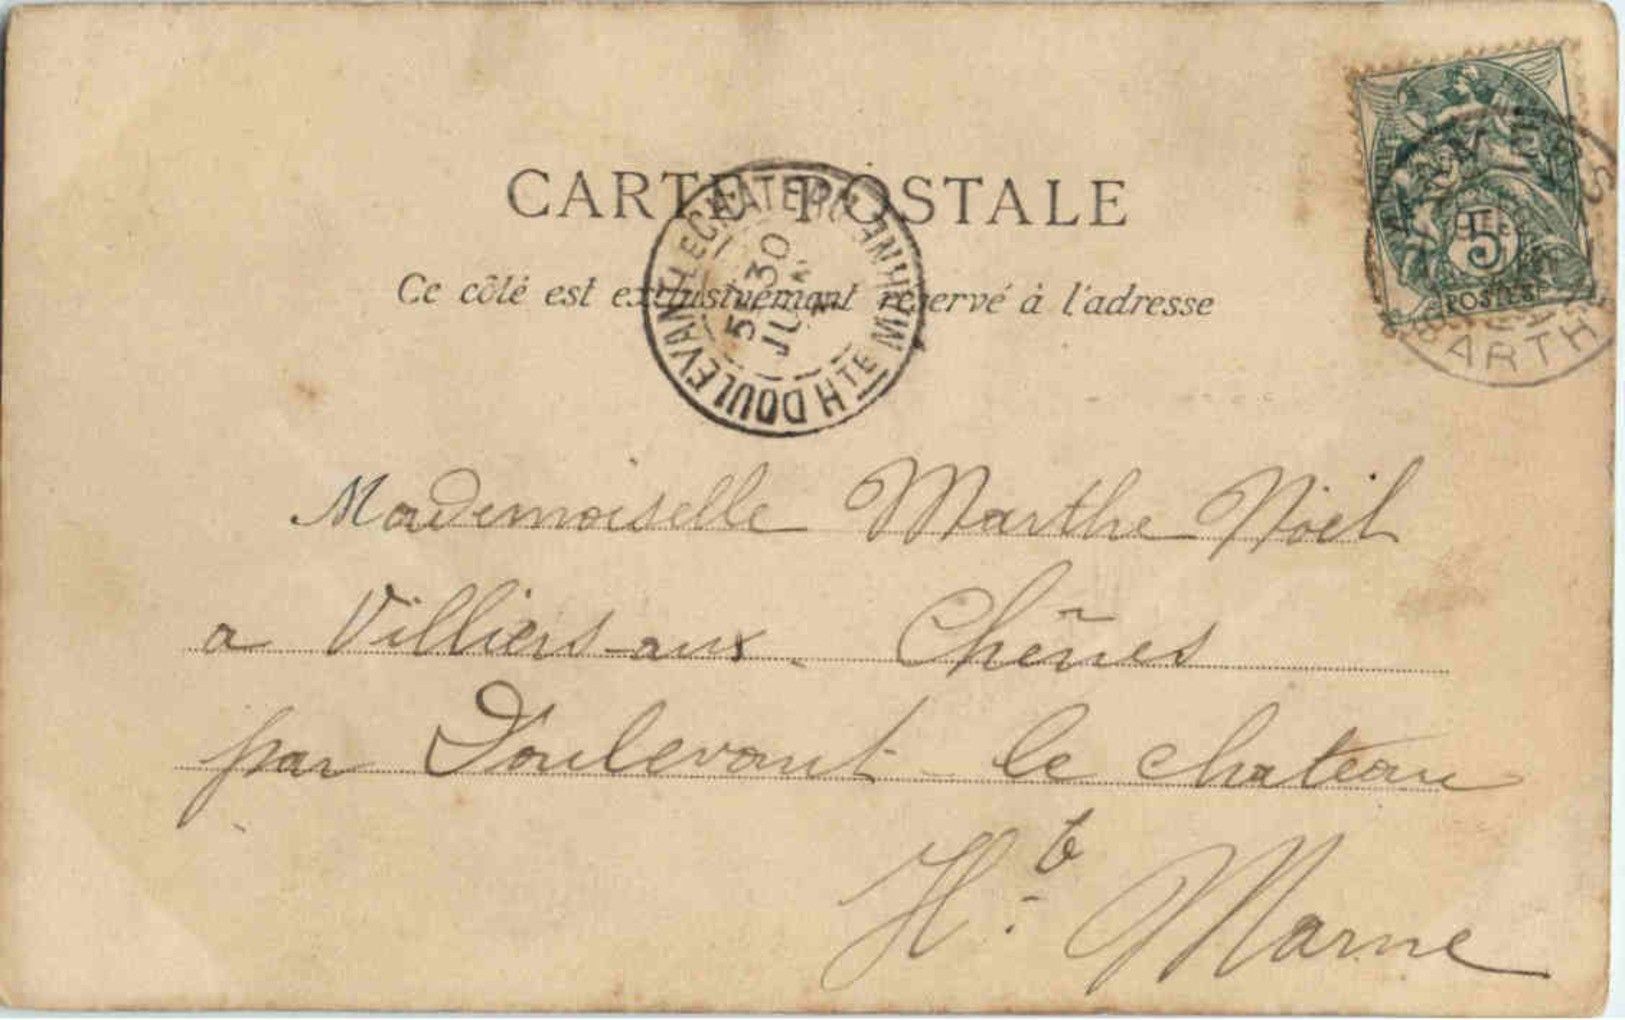 CARTE POSTALE
Ce côté est exclusivement réservé à l'adresse
DOULEVANT-LE-CHATEAU
Hte MARNE
5 30
5
POSTES
BARTH
Mademoiselle Marthe Nöel
a Villiers-aux-Chênes
par Doulevant-le chateau
Hte Marne